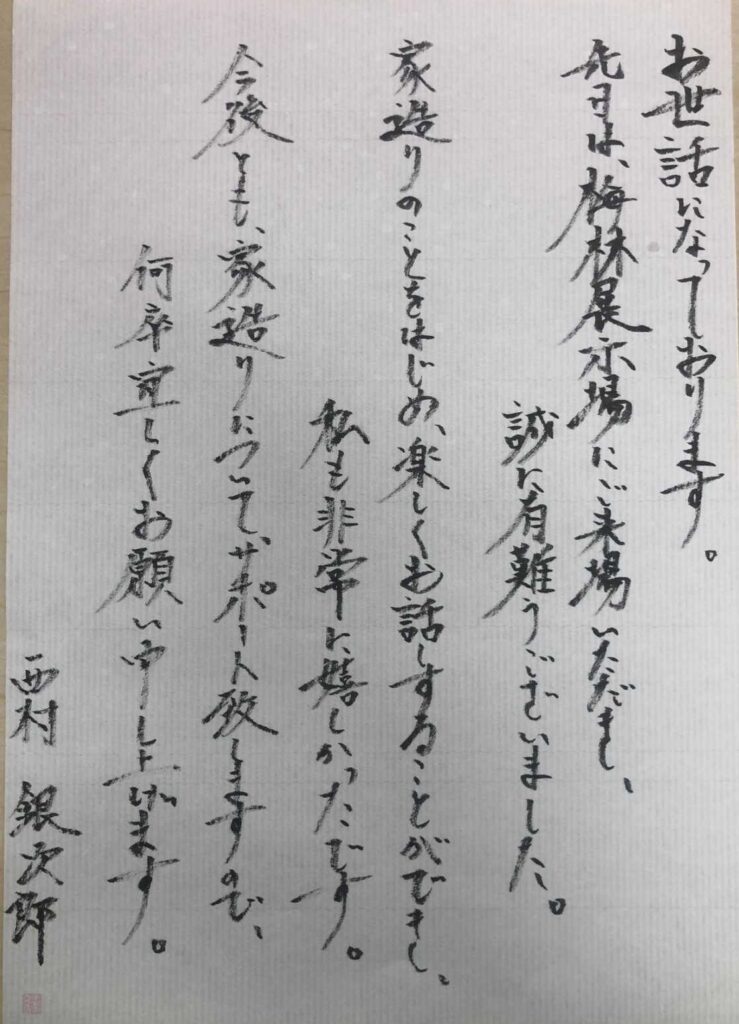 お世話になっております。
先日は、梅林展示場にご来場いただき、
誠に有難うございました。
家造りのことをはじめ、楽しくお話しすることができ、
私も非常に嬉しかったです。
今後とも、家造りについて、サポート致しますので、
何卒宜しくお願い申し上げます。
西村 銀次郎